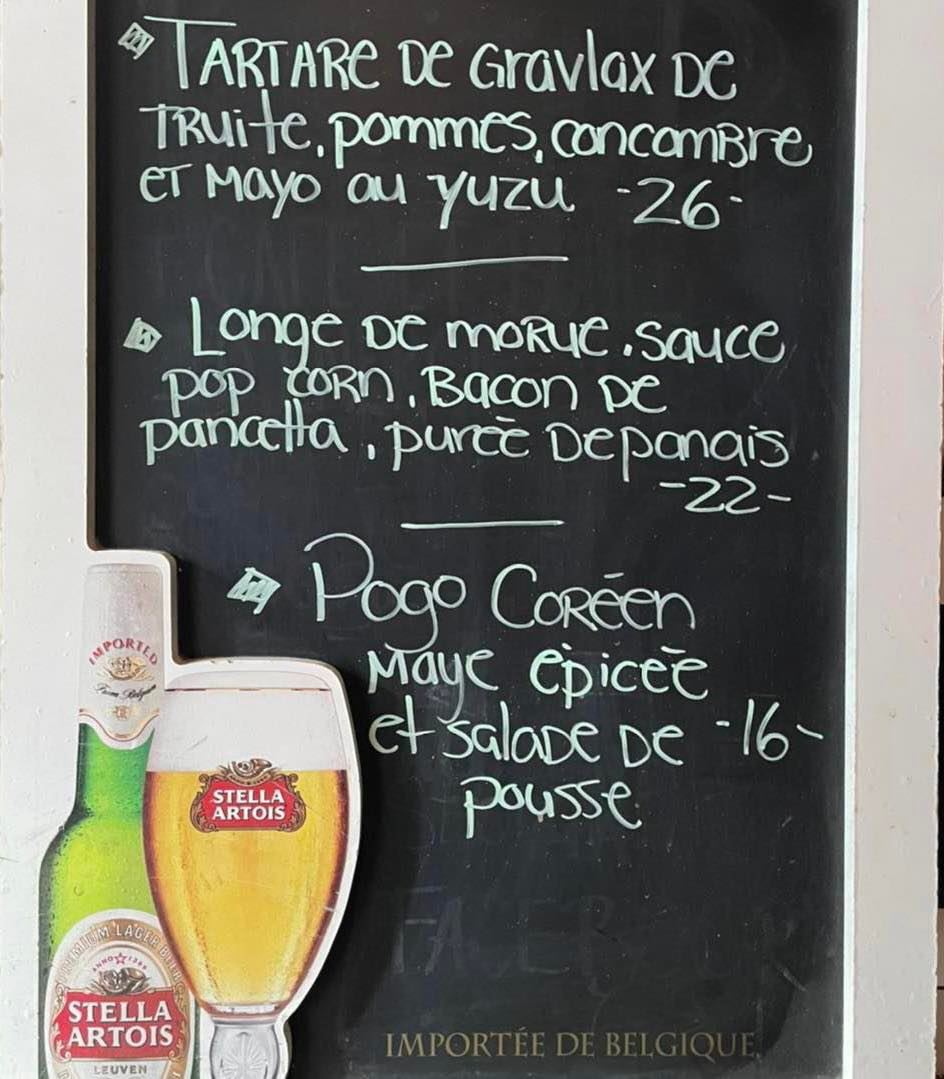 TARTARE DE Gravlax DE
TRuite, pommes, concomBre
et Mayo au yuzu -26-
Longe DE moRue, sauce
pop CORN, Bacon DE
pancetta, purée De panais
-22-
Pogo Coréen
Maye épicée
et salaDe De -16-
pousse
IMPORTED
From Belgium
STELLA
ARTOIS
PREMIUM LAGER BEER
ANNO 1366
STELLA
ARTOIS
LEUVEN
IMPORTÉE DE BELGIQUE